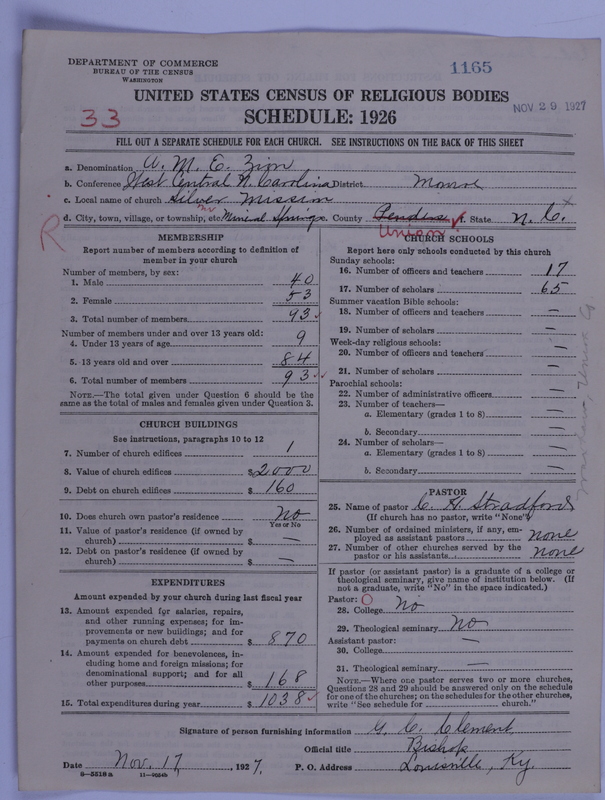 DEPARTMENT OF COMMERCE
BUREAU OF THE CENSUS
WASHINGTON
1165
UNITED STATES CENSUS OF RELIGIOUS BODIES
NOV 29 1927
33
SCHEDULE: 1926
FILL OUT A SEPARATE SCHEDULE FOR EACH CHURCH. SEE INSTRUCTIONS ON THE BACK OF THIS SHEET
a. Denomination A. M. E. Zion
b. Conference West Central N. Carolina District Monroe
c. Local name of church Silver Mission
d. City, town, village, or township, etc. Mineral Springs e. County Union f. State N. C. x
R
MEMBERSHIP
Report number of members according to definition of
member in your church
Number of members, by sex:
1. Male 40
2. Female 53
3. Total number of members 93 ✓
Number of members under and over 13 years old:
4. Under 13 years of age 9
5. 13 years old and over 84
6. Total number of members 93 ✓
NOTE.—The total given under Question 6 should be the
same as the total of males and females given under Question 3.
CHURCH BUILDINGS
See instructions, paragraphs 10 to 12
7. Number of church edifices 1
8. Value of church edifices $ 2000
9. Debt on church edifices $ 160
10. Does church own pastor's residence No
Yes or No
11. Value of pastor's residence (if owned by
church) $ —
12. Debt on pastor's residence (if owned by
church) $ —
EXPENDITURES
Amount expended by your church during last fiscal year
13. Amount expended for salaries, repairs,
and other running expenses; for im-
provements or new buildings; and for
payments on church debt $ 870
14. Amount expended for benevolences, in-
cluding home and foreign missions; for
denominational support; and for all
other purposes $ 168
15. Total expenditures during year $ 1038 ✓
CHURCH SCHOOLS
Report here only schools conducted by this church
Sunday schools:
16. Number of officers and teachers 17
17. Number of scholars 65
Summer vacation Bible schools:
18. Number of officers and teachers —
19. Number of scholars —
Week-day religious schools:
20. Number of officers and teachers —
21. Number of scholars —
Parochial schools:
22. Number of administrative officers —
23. Number of teachers—
a. Elementary (grades 1 to 8) —
b. Secondary —
24. Number of scholars—
a. Elementary (grades 1 to 8) —
b. Secondary —
PASTOR
25. Name of pastor C. H. Stradford
(If church has no pastor, write "None")
26. Number of ordained ministers, if any, em-
ployed as assistant pastors none
27. Number of other churches served by the
pastor or his assistants none
If pastor (or assistant pastor) is a graduate of a college or
theological seminary, give name of institution below. (If
not a graduate, write "No" in the space indicated.)
Pastor: O
28. College No
29. Theological seminary No
Assistant pastor:
30. College —
31. Theological seminary —
NOTE.—Where one pastor serves two or more churches,
Questions 28 and 29 should be answered only on the schedule
for one of the churches; on the schedules for the other churches,
write "See schedule for church."
Signature of person furnishing information G. C. Clement
Official title Bishop
Date Nov. 17, 1927. P. O. Address Louisville, Ky.
8-5518a 11-9034b